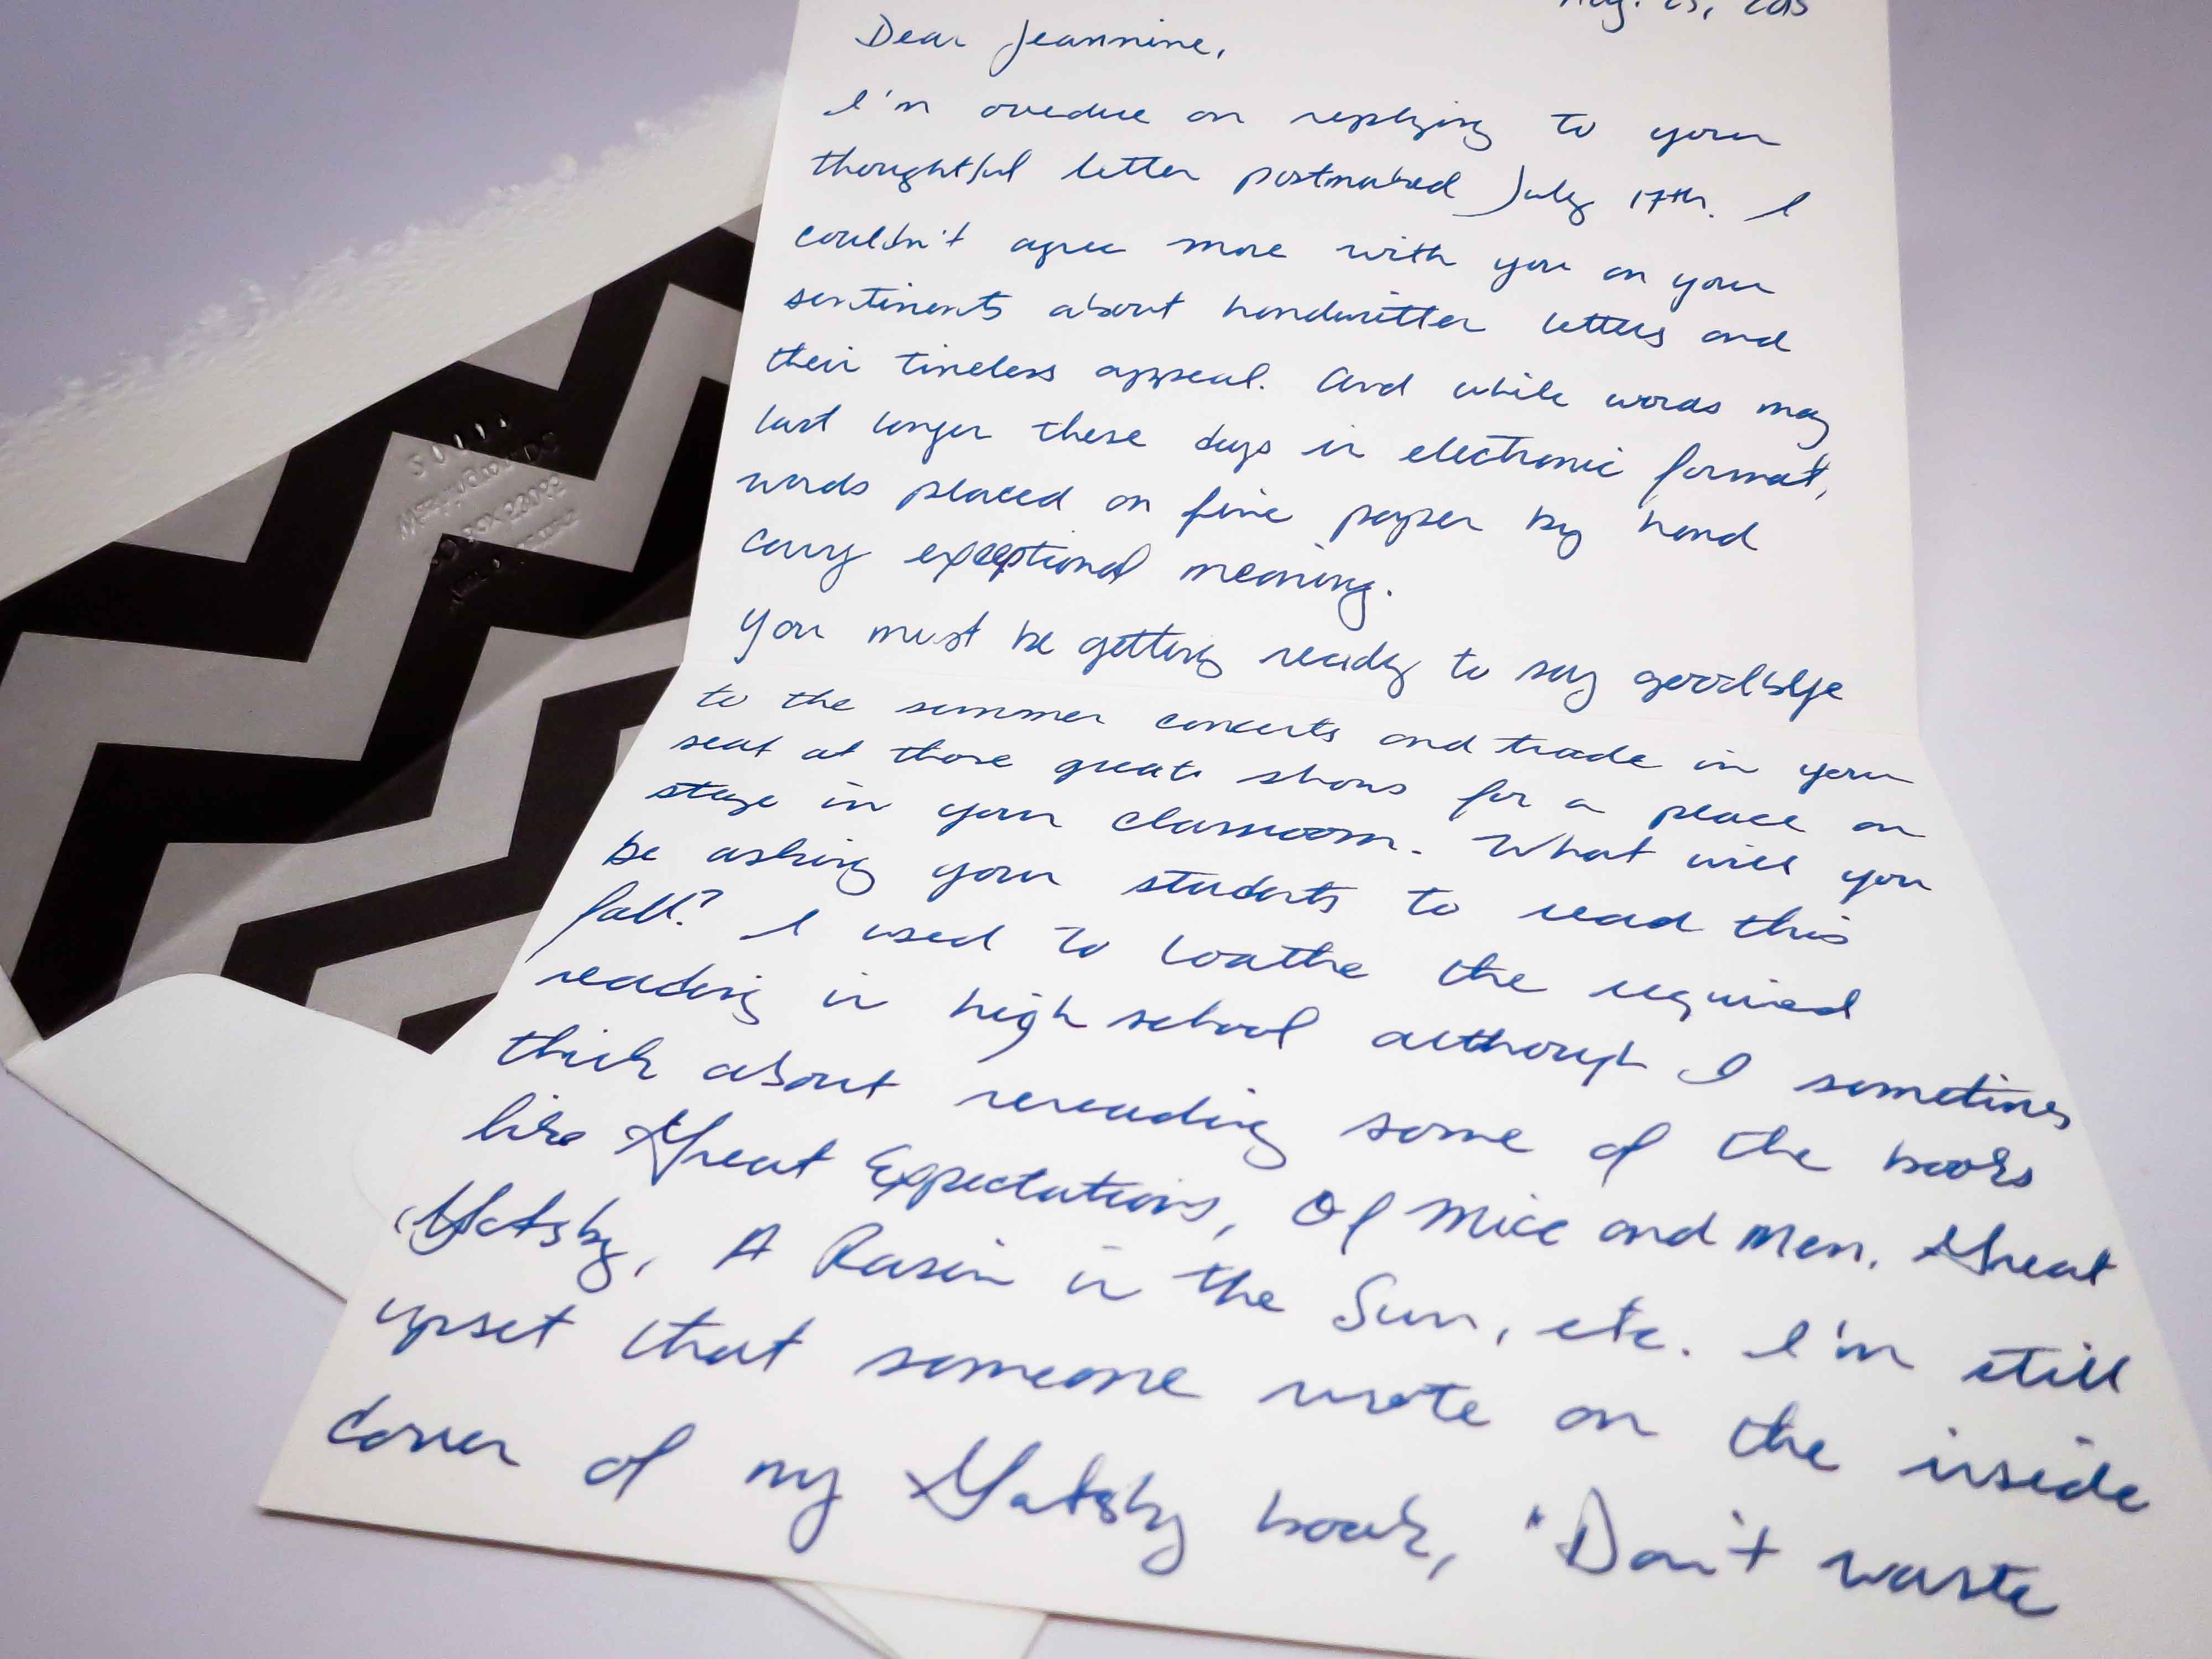 Aug. 25, 2015
Dear Jeannine,
I'm overdue on replying to your
thoughtful letter postmarked July 17th. I
couldn't agree more with you on your
sentiments about handwritten letters and
their timeless appeal. And while words may
last longer these days in electronic format,
words placed on fine paper by hand
carry exceptional meaning.
You must be getting ready to say goodbye
to the summer concerts and trade in your
seat at those great shows for a place on
stage in your classroom. What will you
be asking your students to read this
fall? I used to loathe the required
reading in high school although I sometimes
think about rereading some of the books
like Great Expectations, Of Mice and Men, Great
Gatsby, A Rasin in the Sun, etc. I'm still
upset that someone wrote on the inside
cover of my Gatsby book, "Don't waste